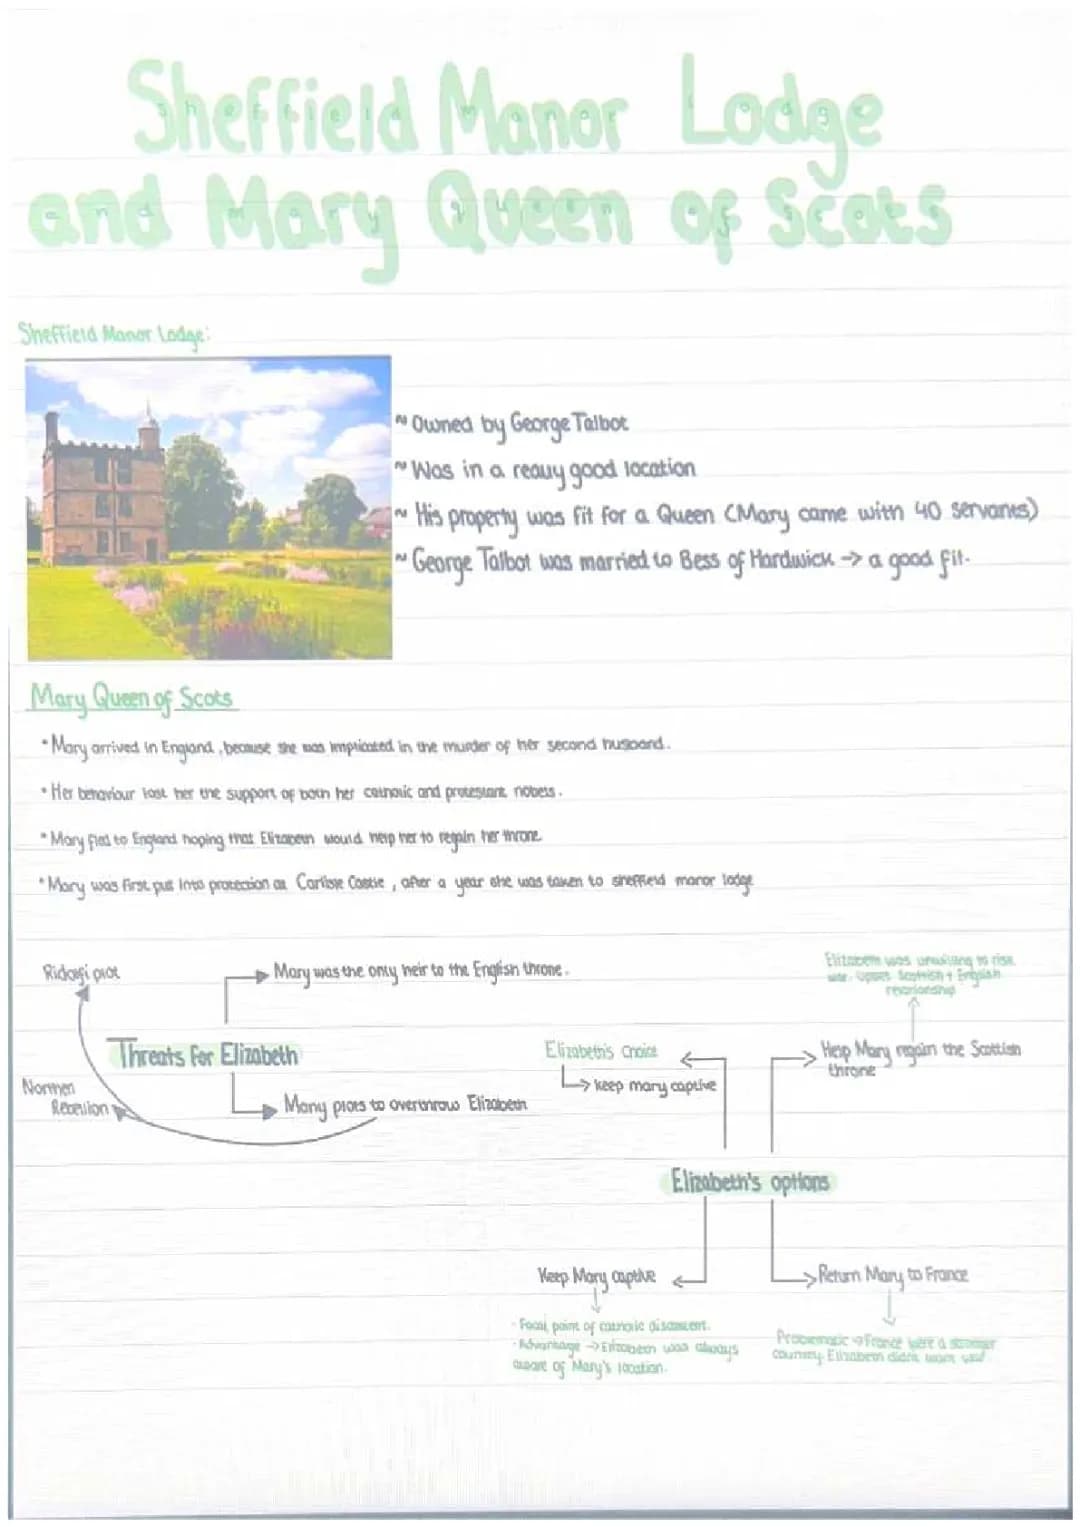 Sheffield Manor Lodge
and Mary Queen of Scots
Sheffield Manor Lodge:
~ Owned by George Talbot
~ Was in a really good location
~ His property was fit for a Queen (Mary came with 40 servants)
~ George Talbot was married to Bess of Hardwick → a good fit.
Mary Queen of Scots
• Mary arrived in England, because she was implicated in the murder of her second husband.
• Her behaviour lost her the support of both her catholic and protestant nobels.
• Mary fled to England hoping that Elizabeth would help her to regain her throne
• Mary was first put into protection at Carlisle Castle, after a year she was taken to sheffield manor lodge
Ridolfi plot
Mary was the only heir to the English throne.
Threats for Elizabeth
Northen
Rebellion
Many plots to overthrow Elizabeth
Elizabeth was unwilling to risk
war. Upset Scottish + English
relationship
Elizabeth's Choice
→ keep mary captive
Help Mary regain the Scottish
throne
Elizabeth's options
Keep Mary captive
Return Mary to France
· Focal point of catholic discontent.
· Advantage → Elizabeth was always
aware of Mary's location.
Problematic → France were a stronger
country. Elizabeth didnt want